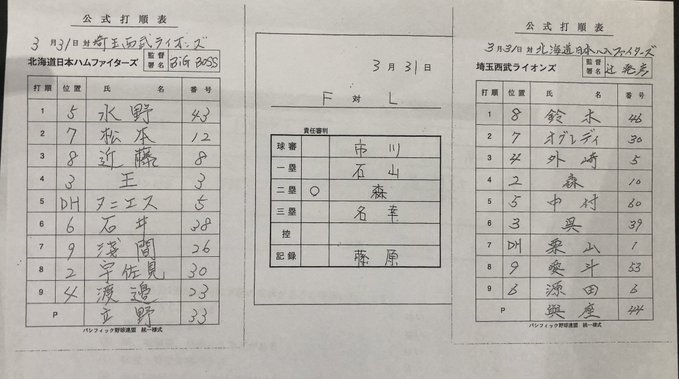 公式打順表
3月31日 対 埼玉西武ライオンズ
北海道日本ハムファイターズ 監督署名 BIG BOSS
打順 位置 氏名 番号
1 5 水野 43
2 7 松本 12
3 8 近藤 8
4 3 王 3
5 DH ヌニエス 5
6 6 石井 38
7 9 浅間 26
8 2 宇佐見 30
9 4 渡邉 23
P 立野 33
パシフィック野球連盟 統一様式
3月31日
F 対 L
責任審判
球審 市川
一塁 石山
二塁 ○ 森
三塁 名幸
控
記録 藤原
公式打順表
3月31日 対 北海道日本ハムファイターズ
埼玉西武ライオンズ 監督署名 辻 発彦
打順 位置 氏名 番号
1 8 鈴木 46
2 7 オグレディ 30
3 4 外崎 5
4 2 森 10
5 5 中村 60
6 3 呉 39
7 DH 栗山 1
8 9 愛斗 53
9 6 源田 6
P 與座 44
パシフィック野球連盟 統一様式